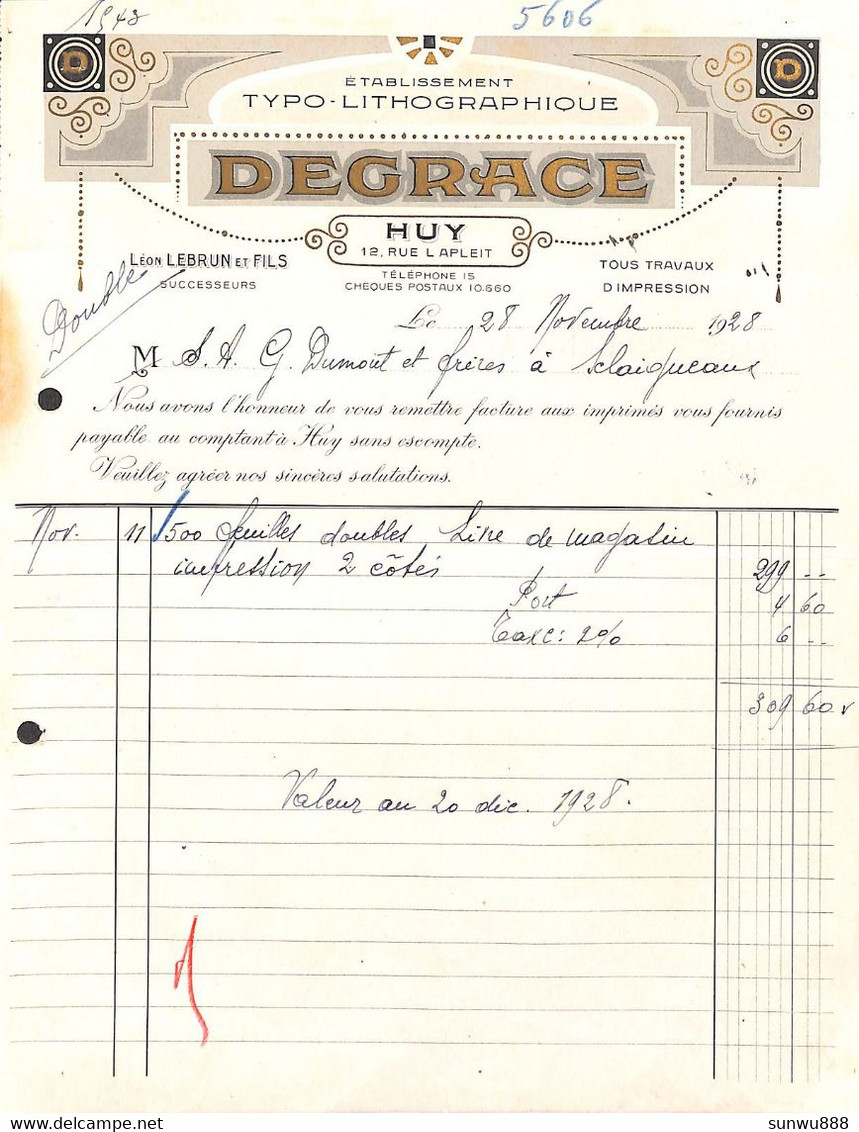 1943 5606
D D
ÉTABLISSEMENT
TYPO-LITHOGRAPHIQUE
DEGRACE
HUY
12, RUE LAPLEIT
LÉON LEBRUN ET FILS
SUCCESSEURS
TÉLÉPHONE 15
CHÈQUES POSTAUX 10.660
TOUS TRAVAUX
D'IMPRESSION
Double
Le 28 Novembre 1928
M S. A. G. Dumont et frères à Sclaigneaux
Nous avons l'honneur de vous remettre facture aux imprimés vous fournis
payable au comptant à Huy sans escompte.
Veuillez agréer nos sincères salutations.
Nov. 11 500 feuilles doubles Livre de magasin
impression 2 côtés 299 --
Port 4 60
Taxe: 2% 6 --
309 60
Valeur au 20 déc. 1928.
delcampe.net
sunwu888